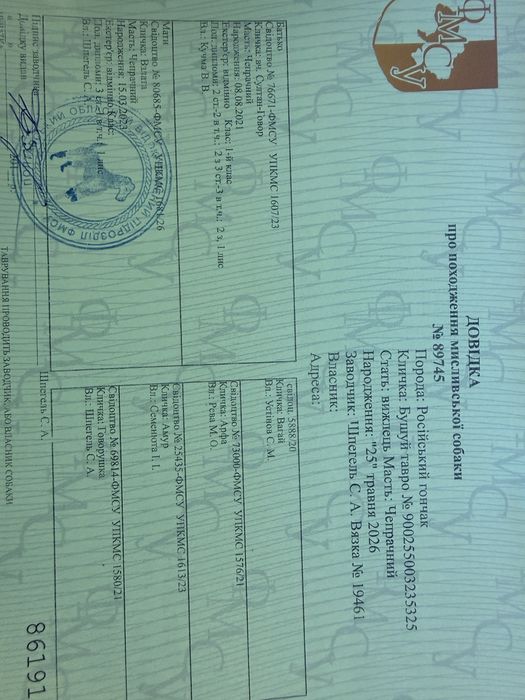 ФМСУ
ДОВІДКА
про походження мисливської собаки
№ 89745
Порода: Російський гончак
Кличка: Бушуй тавро № 900255003235325
Стать: вижлець Масть: Чепрачний
Народження: "25" травня 2026
Заводчик: Шпегель С. А. Вязка № 19461
Власник:
Адреса:
Батько
Свідоцтво № 76671-ФМСУ УПКМС 1607/23
Кличка: вч. Султан-Говор
Масть: Чепрачний
Народження: 08.08.2021
Екстер'єр: відмінно Клас: 1-й клас
Пол. дипломи: 2 ст.-2 в т.ч.: 2 з 3 ст.-3 в т.ч.: 2 з, 1 лис
Вл.: Кузма В. В.
Мати
Свідоцтво № 80685-ФМСУ УПКМС 1681/26
Кличка: Вилята
Масть: Чепрачний
Народження: 15.03.2023
Екстер'єр: відмінно Клас:
Пол. дипломи: 3 ст. в т.ч.: лис
Вл.: Шпегель С. А.
свідоц. 5888/20
Кличка: Валгай
Вл.: Устінов С. М.
Свідоцтво № 73000-ФМСУ УПКМС 1576/21
Кличка: Арфа
Вл.: Рева М. О.
Свідоцтво № 25435-ФМСУ УПКМС 1613/23
Кличка: Амур
Вл.: Семенюта І. І.
Свідоцтво № 69814-ФМСУ УПКМС 1580/21
Кличка: Говорушка
Вл.: Шпегель С. А.
Підпис заводчика
Шпегель С. А.
Довідку видав
ТАВРУВАННЯ ПРОВОДИТЬ ЗАВОДЧИК АБО ВЛАСНИК СОБАКИ
86191